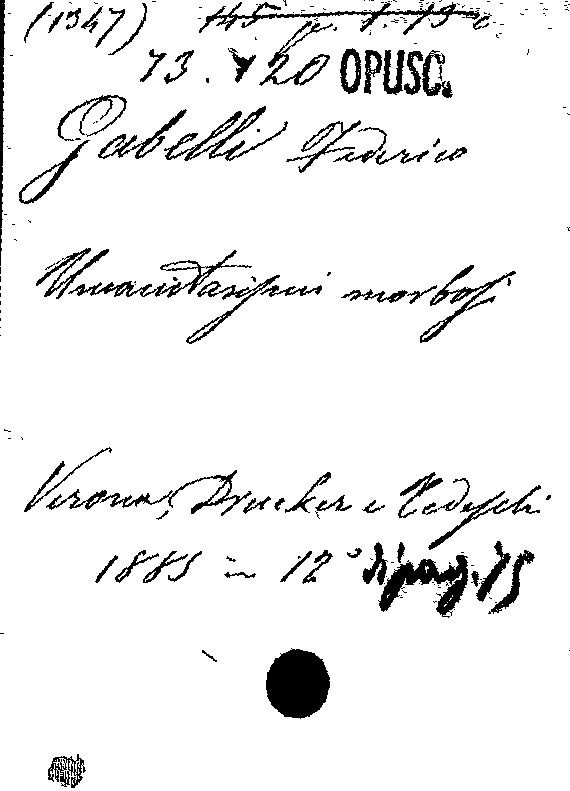 (1347) 145
73. 120 OPUSC.
Gabelli Federico
Umanitarismi morbosi
Verona, Drucker e Tedeschi
1885 in 12° di pag. 75